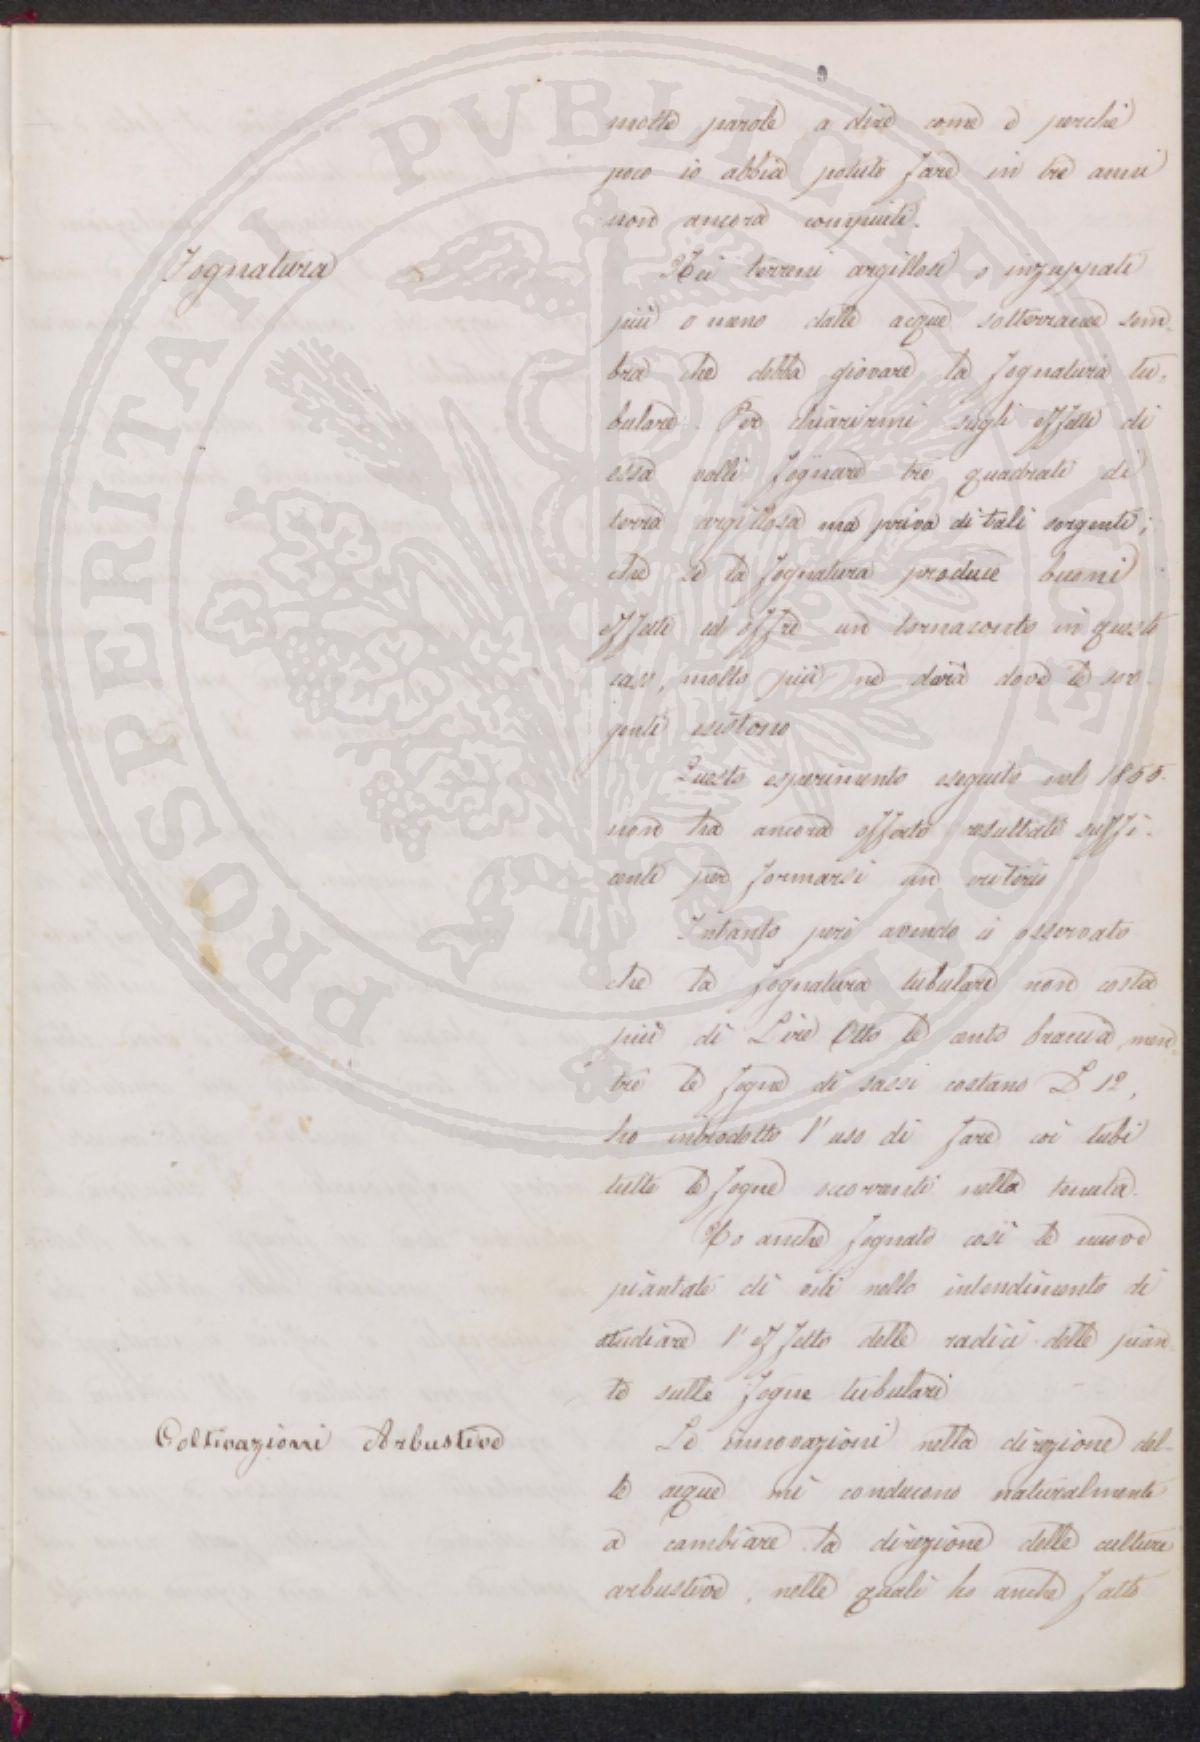 9
molte parole a dire come e perchè
poco io abbia potuto fare in tre anni
non ancora compiuti.
Fognatura
Nei terreni argillosi o inzuppati
più o meno dalle acque sotterranee sem-
bra che debba giovare la fognatura tu-
bulare. Per chiarirmi sugli effetti di
essa volli fognare tre quadrati di
terra argillosa ma priva di tali sorgenti;
che se la fognatura produce buoni
effetti ed offre un tornaconto in questo
caso, molto più ne darà dove le sor-
genti esistono
Questo esperimento eseguito nel 1855.
non ha ancora offerto resultati suffi-
centi per formarsi un criterio
Intanto però avendo io osservato
che la fognatura tubulare non costa
più di Lire Otto le cento braccia, men-
tre le fogne di sassi costano L 12,
ho introdotto l'uso di fare coi tubi
tutte le fogne occorrenti nella tenuta.
Ho anche fognato così le nuove
piantate di viti nello intendimento di
studiare l'effetto delle radici delle pian-
te sulle fogne tubulari
Coltivazioni Arbustive
Le innovazioni nella direzione del-
le acque mi conducono naturalmente
a cambiare la direzione delle culture
arbustive, nelle quali ho anche fatto
PROSPERITATI PVBLICAE AVGENDAE